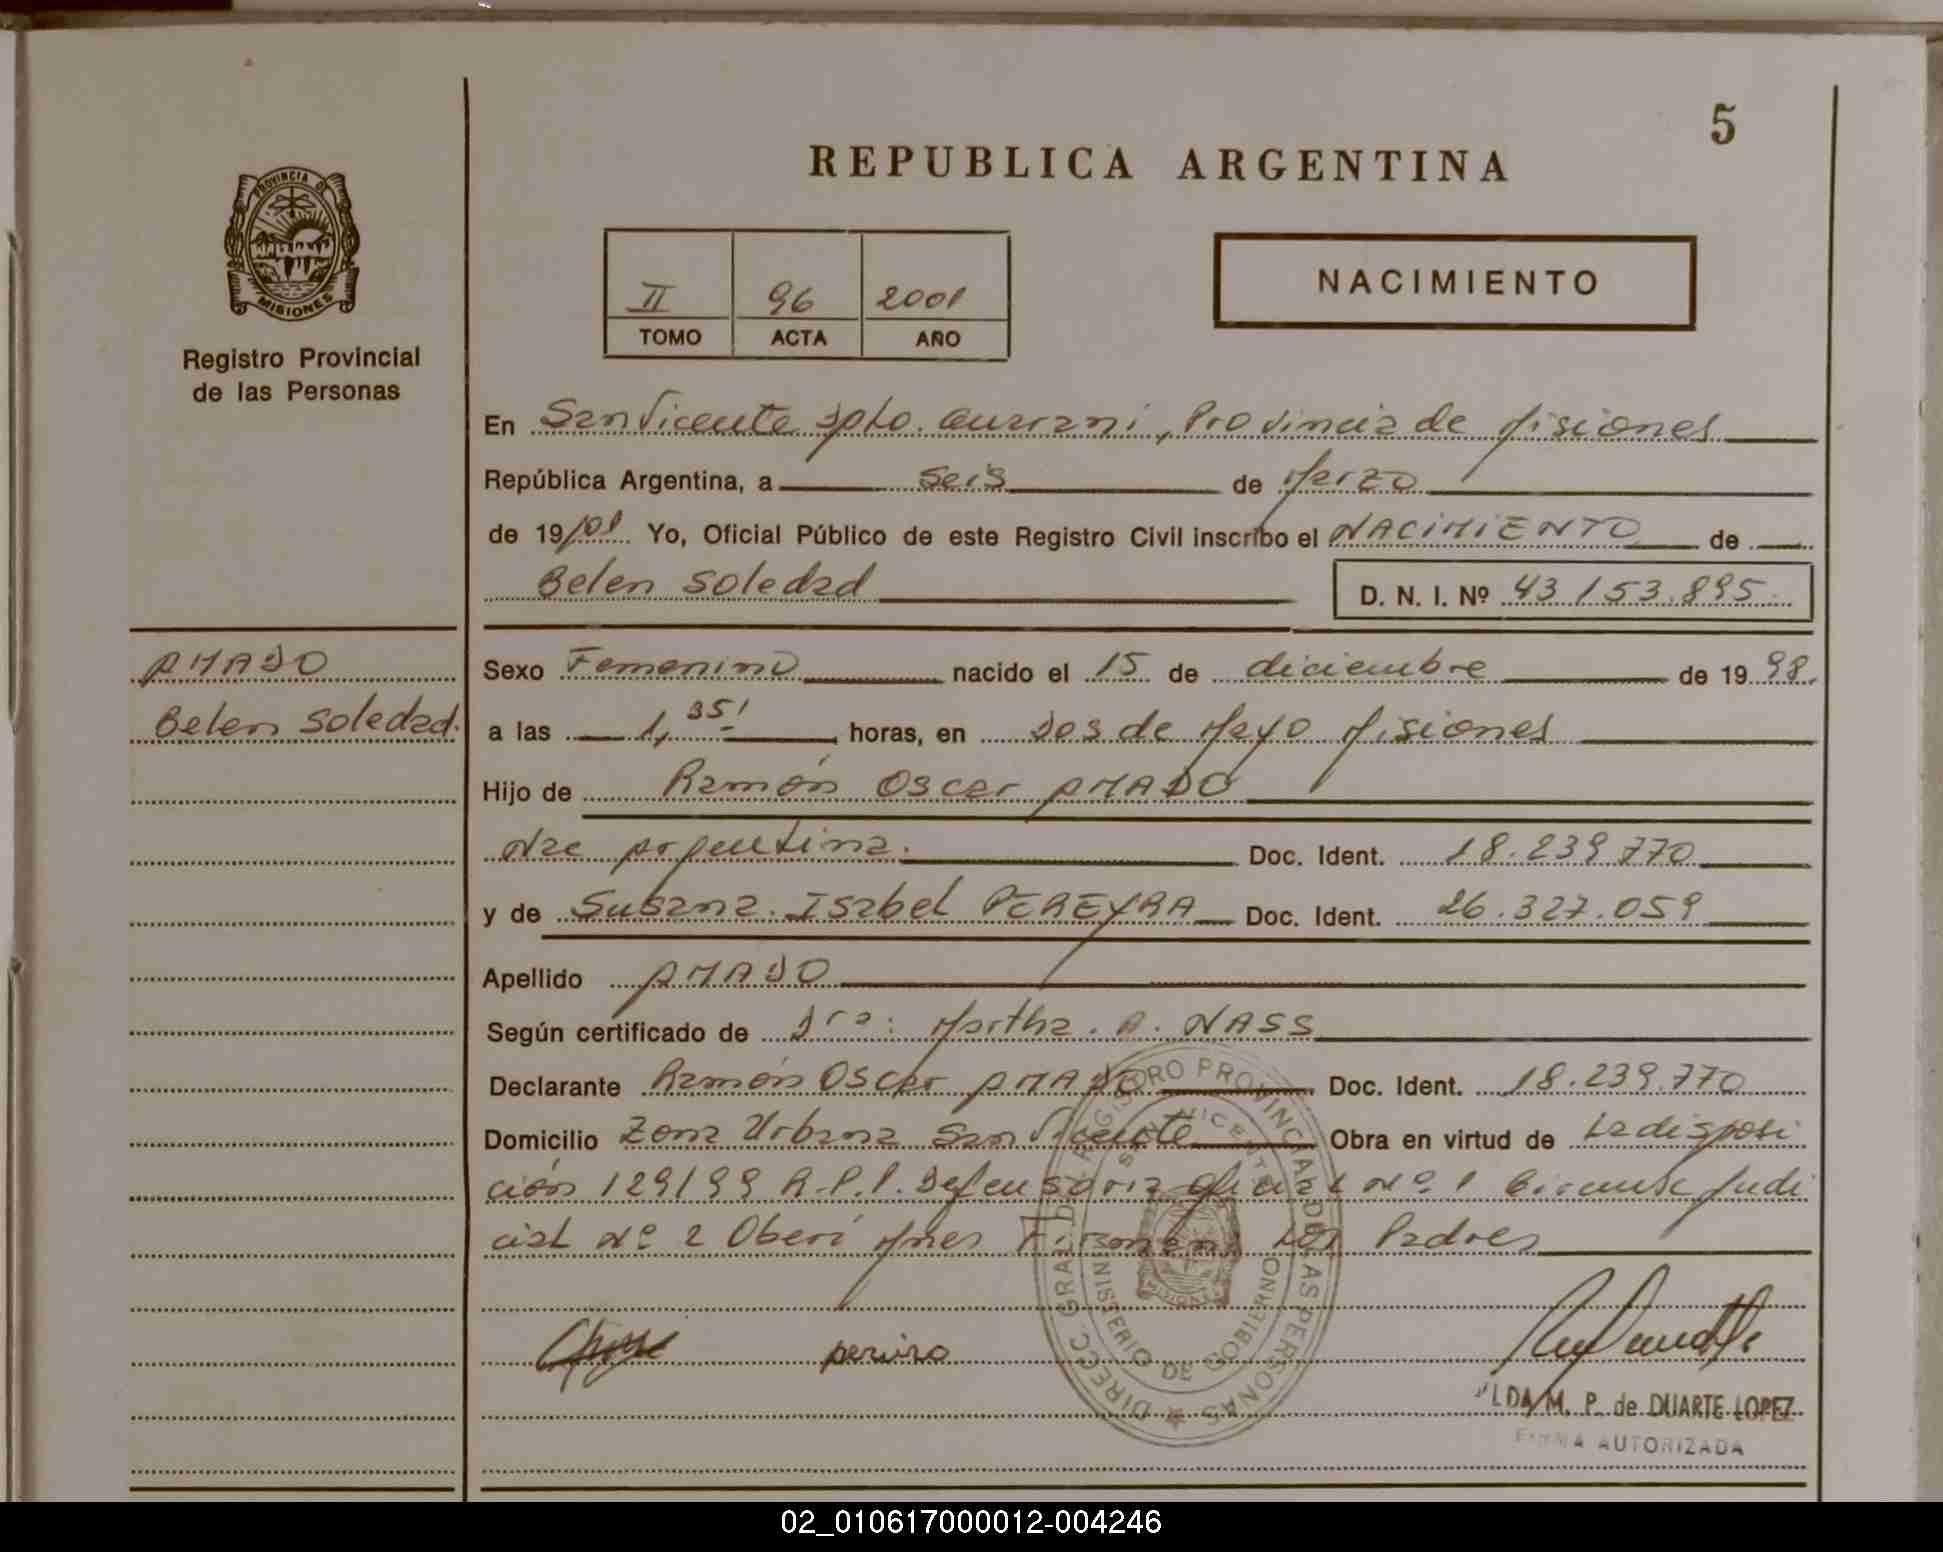 5
REPUBLICA ARGENTINA
PROVINCIA DE
MISIONES
Registro Provincial
de las Personas
II 96 2001
TOMO ACTA AÑO
NACIMIENTO
En San Vicente Dpto. Guaraní, Provincia de Misiones
República Argentina, a seis de Marzo
de 19/01 Yo, Oficial Público de este Registro Civil inscribo el NACIMIENTO de
Belen Soledad D. N. I. Nº 43.153.895.
AMADO
Belen Soledad.
Sexo Femenino nacido el 15 de diciembre de 1998.
a las 1,35' horas, en Dos de Mayo Misiones
Hijo de Ramón Oscar AMADO
Nac Argentina. Doc. Ident. 18.239.770
y de Susana. Isabel PEREYRA Doc. Ident. 26.327.059
Apellido AMADO
Según certificado de Dra: Martha. A. NASS
Declarante Ramón Oscar AMADO Doc. Ident. 18.239.770
Domicilio Zona Urbana San Vicente Obra en virtud de La disposi
ción 129/99 R.P.P. Defensoria Oficial Nº 1 Circunsc Judi
cial Nº 2 Oberá Mnes Firman Los Padres
DIRECC. GRAL. DE REGISTRO PROVINCIAL DE LAS PERSONAS
SAN VICENTE
MINISTERIO DE GOBIERNO
MISIONES
LDA M. P. de DUARTE LOPEZ
FIRMA AUTORIZADA
02_010617000012-004246